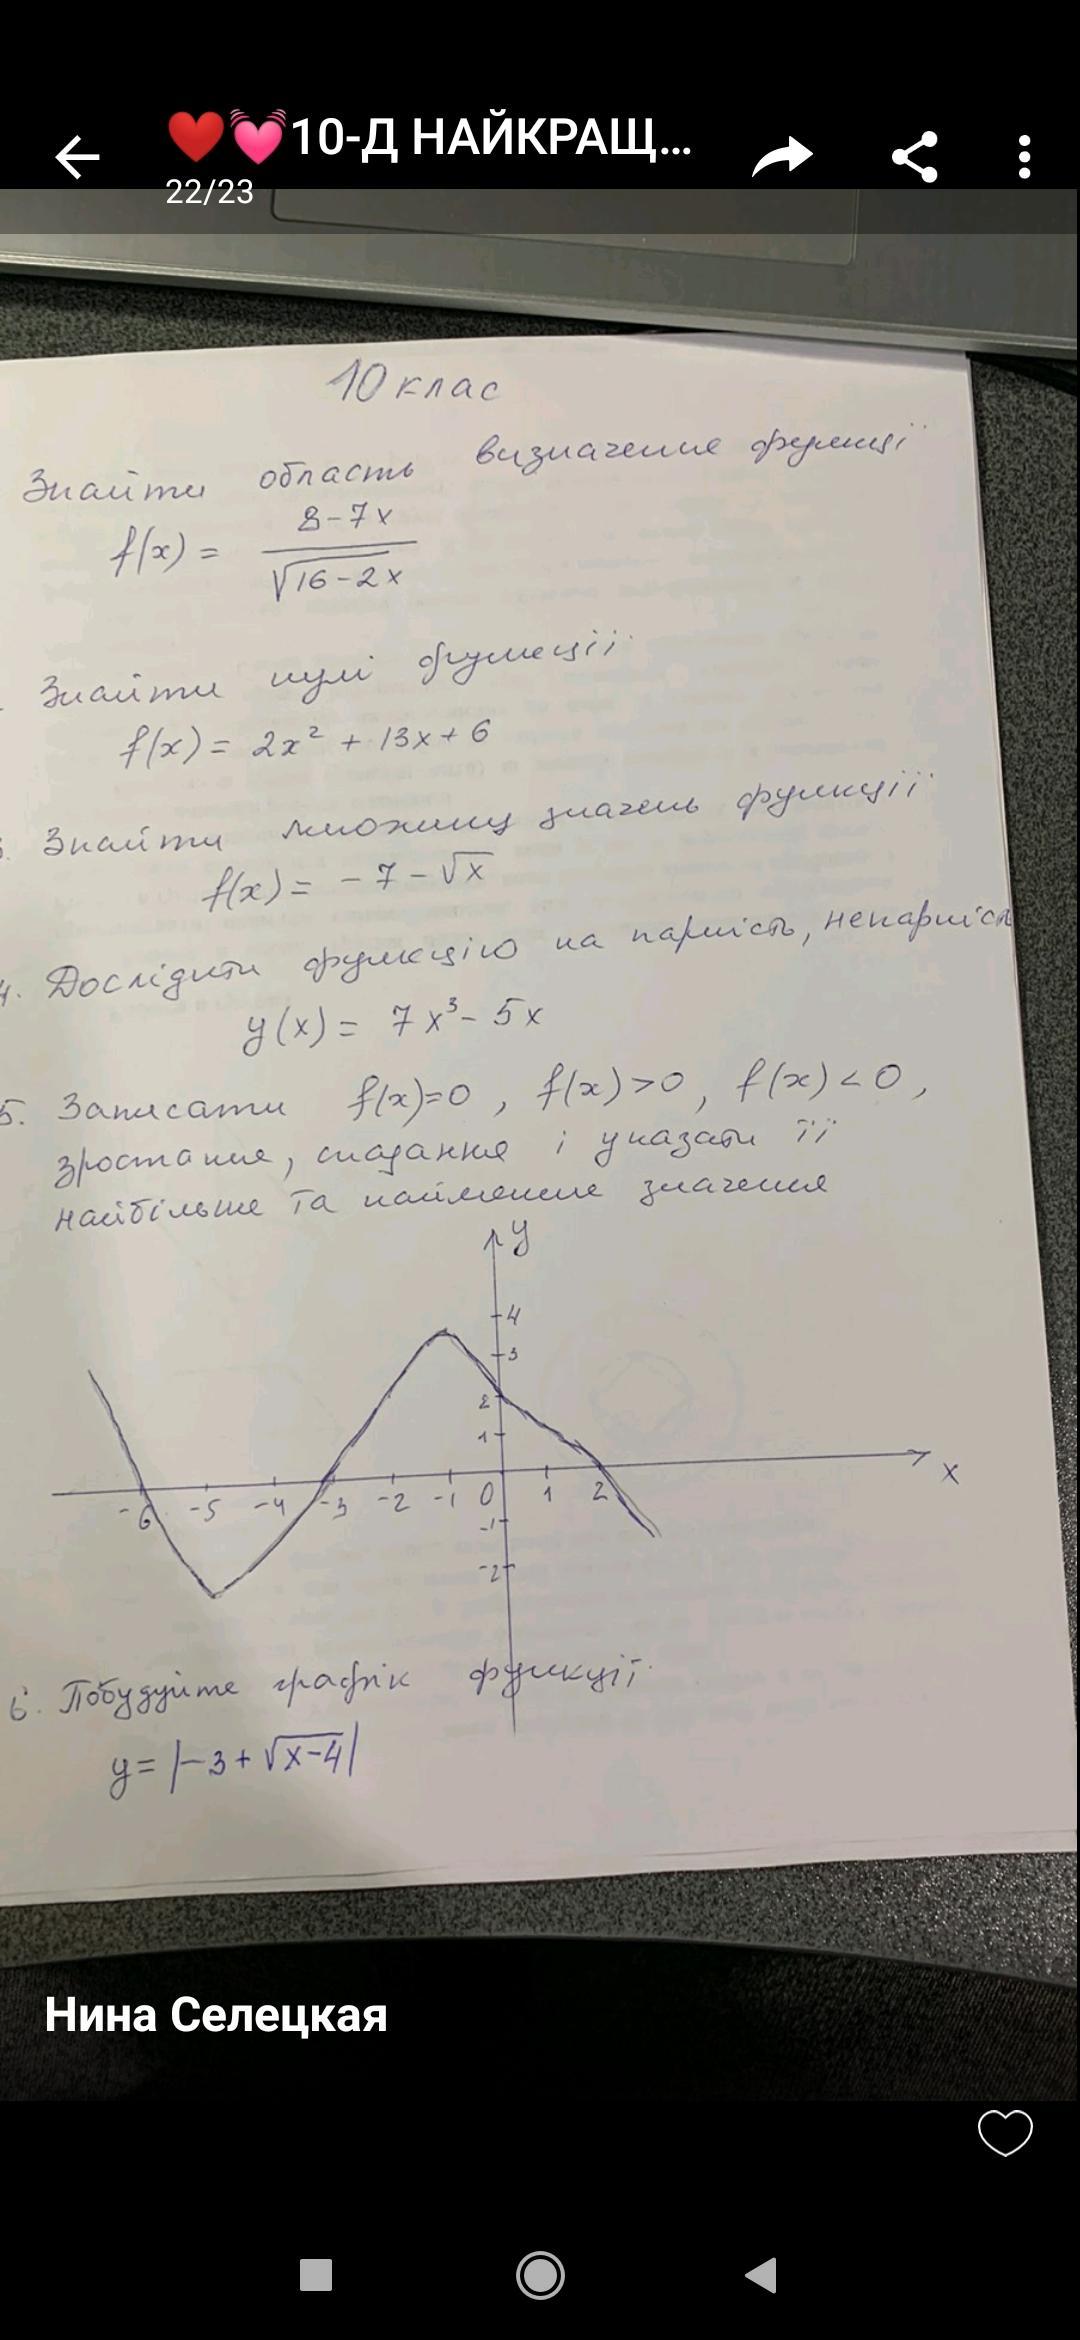 ❤️💓10-Д НАЙКРАЩ...
22/23
10 клас
Знайти область визначення функції
f(x) = 8-7x / √16-2x
Знайти нулі функції
f(x) = 2x² + 13x + 6
3. Знайти множину значень функції
f(x) = -7-√x
4. Дослідити функцію на парність, непарність
y(x) = 7x³ - 5x
5. Записати f(x)=0, f(x)>0, f(x)<0,
зростання, спадання і указати її
найбільше та найменше значення
y
4
3
2
1
-6 -5 -4 -3 -2 -1 0 1 2 x
-1
-2
6. Побудуйте графік функції
y = |-3 + √x-4|
Нина Селецкая